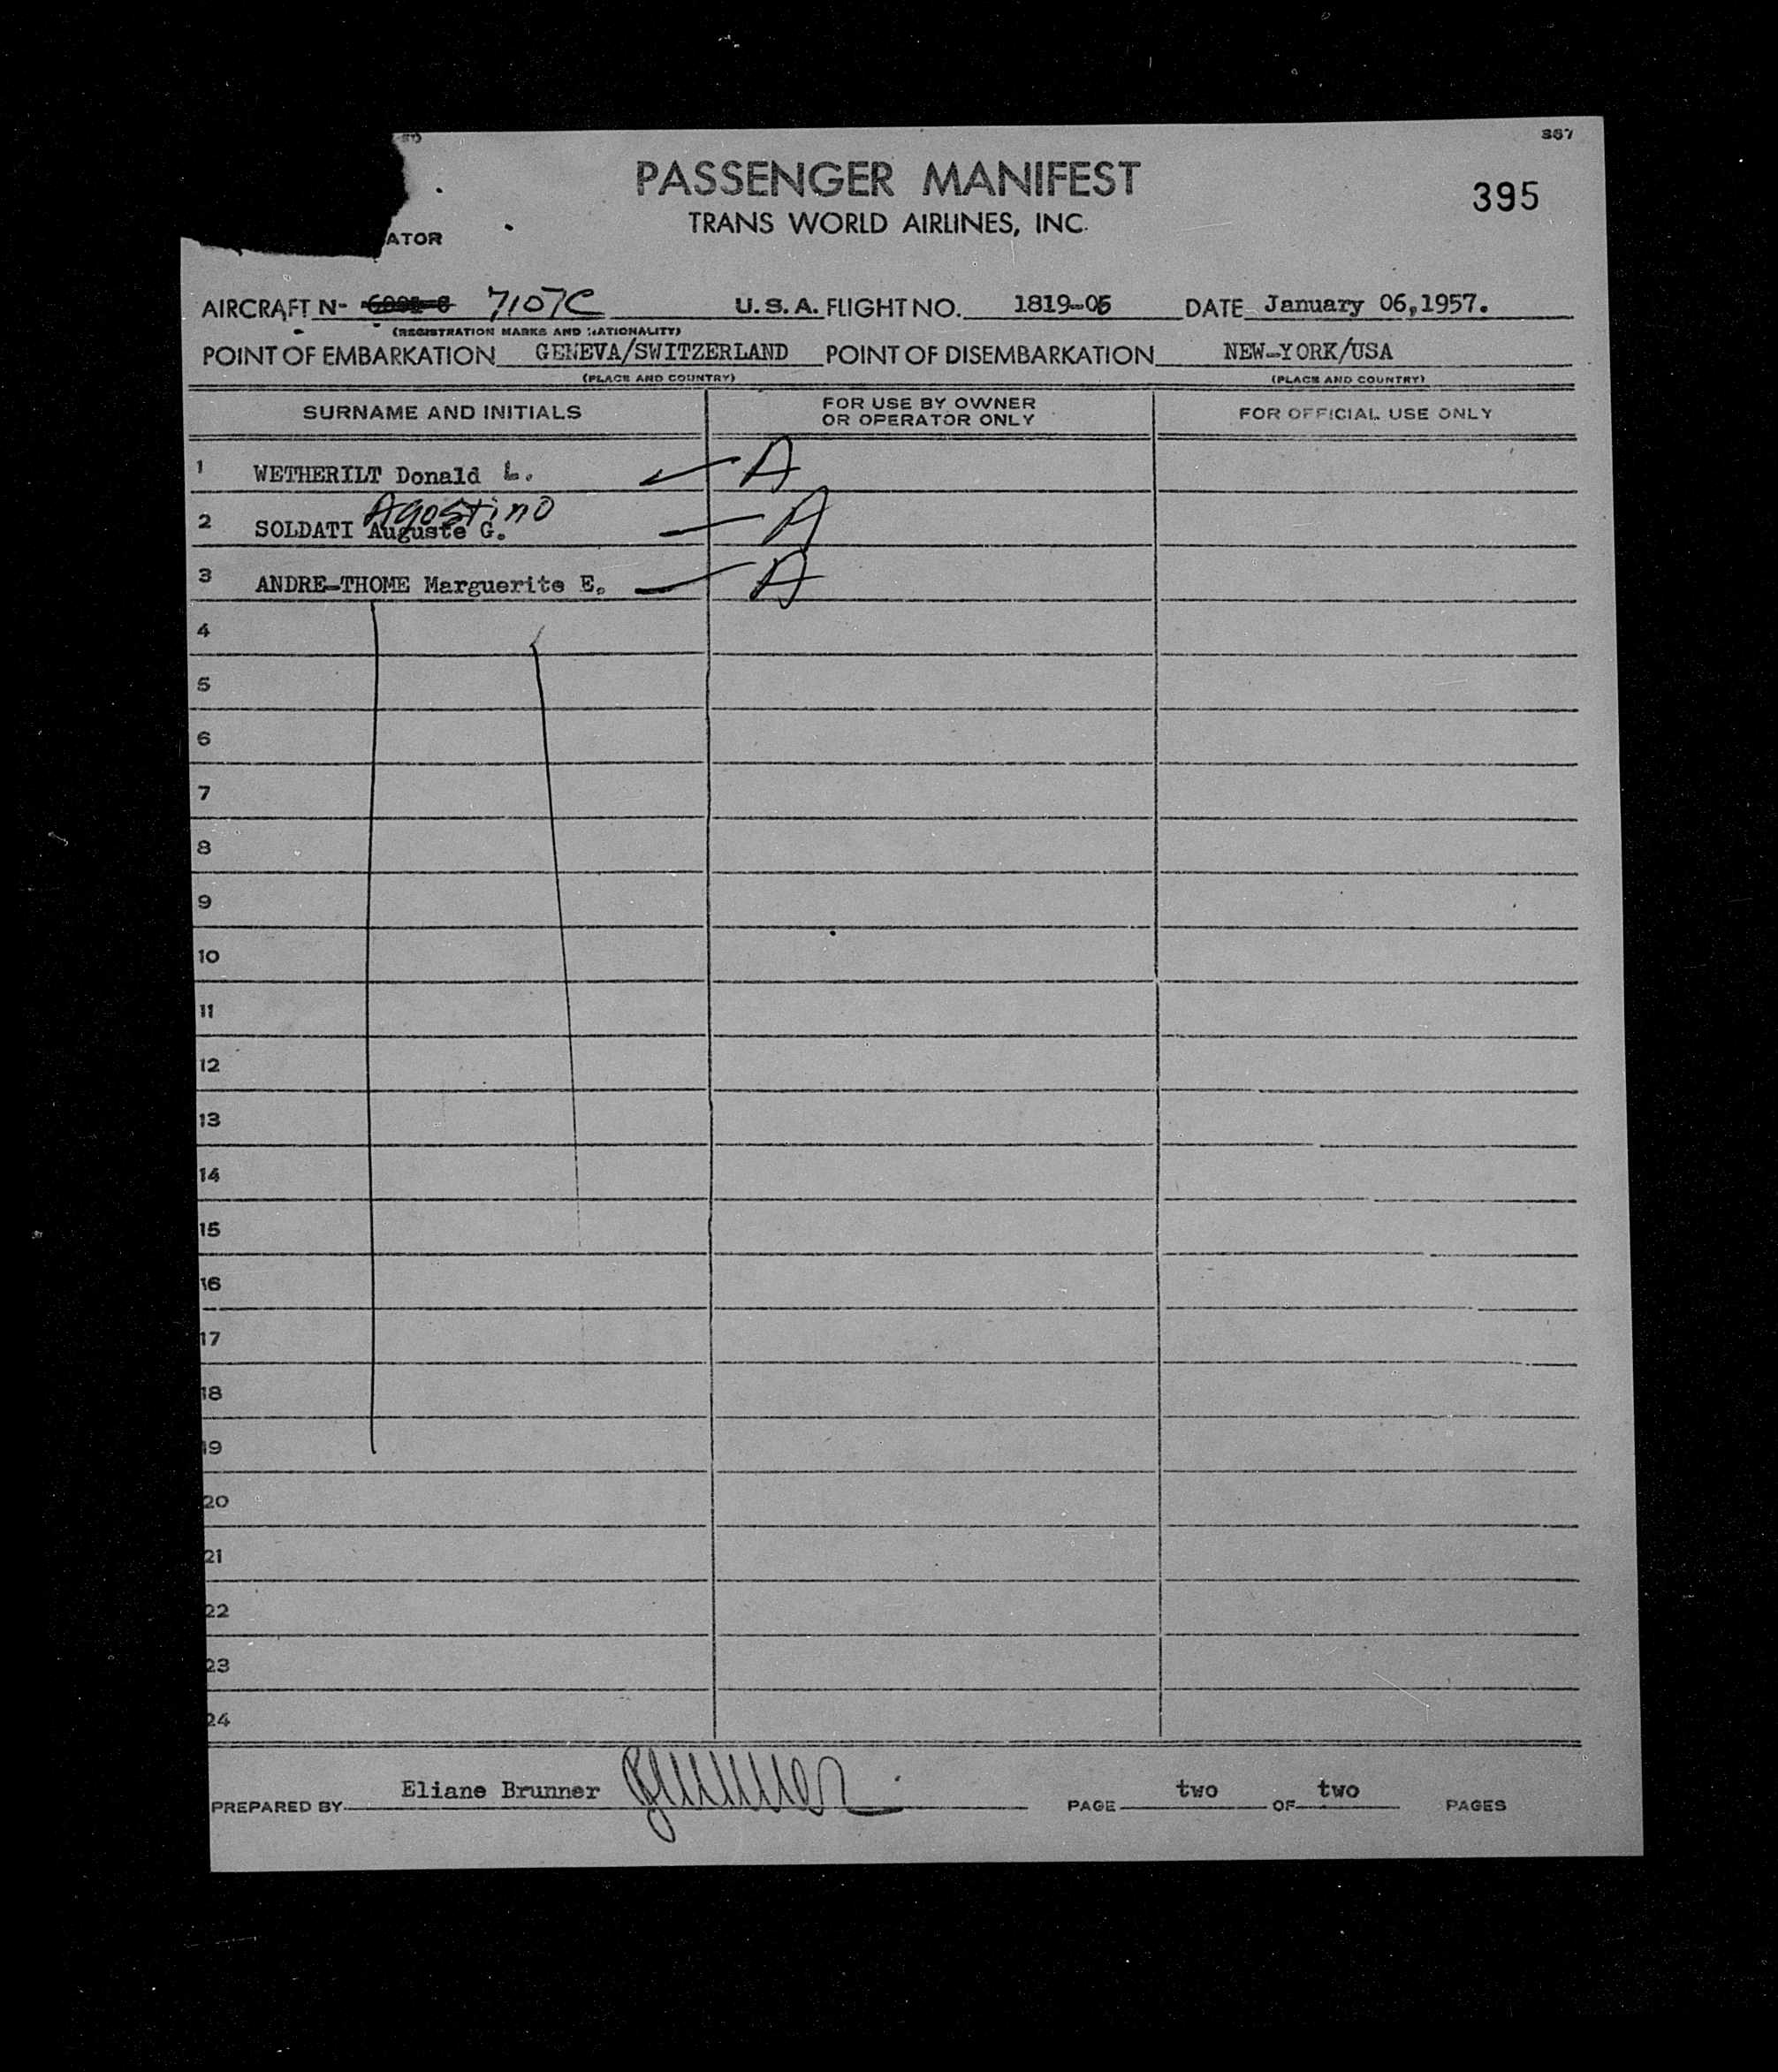 887
PASSENGER MANIFEST
395
TRANS WORLD AIRLINES, INC.
ATOR
AIRCRAFT N- 7107C U.S.A. FLIGHT NO. 1819-05 DATE January 06,1957.
(REGISTRATION MARKS AND NATIONALITY)
POINT OF EMBARKATION GENEVA/SWITZERLAND POINT OF DISEMBARKATION NEW-YORK/USA
(PLACE AND COUNTRY) (PLACE AND COUNTRY)
SURNAME AND INITIALS FOR USE BY OWNER OR OPERATOR ONLY FOR OFFICIAL USE ONLY
1 WETHERILT Donald L. A
Agostino
2 SOLDATI Auguste G. A
3 ANDRE-THOME Marguerite E. A
4
5
6
7
8
9
10
11
12
13
14
15
16
17
18
19
20
21
22
23
24
PREPARED BY Eliane Brunner Brunner PAGE two OF two PAGES